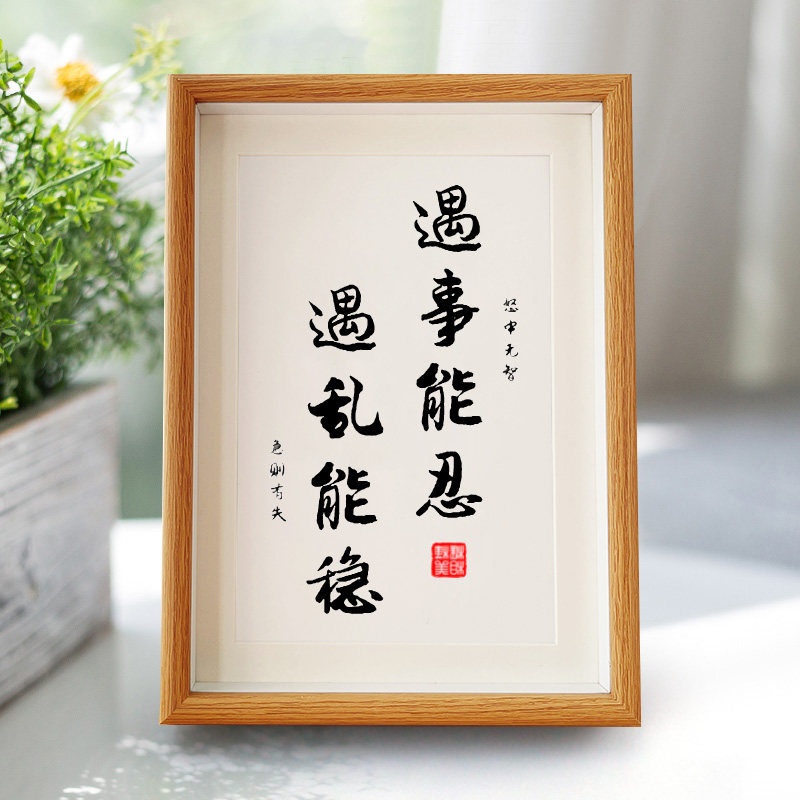 怒中无智
遇事能忍
遇乱能稳
急则有失